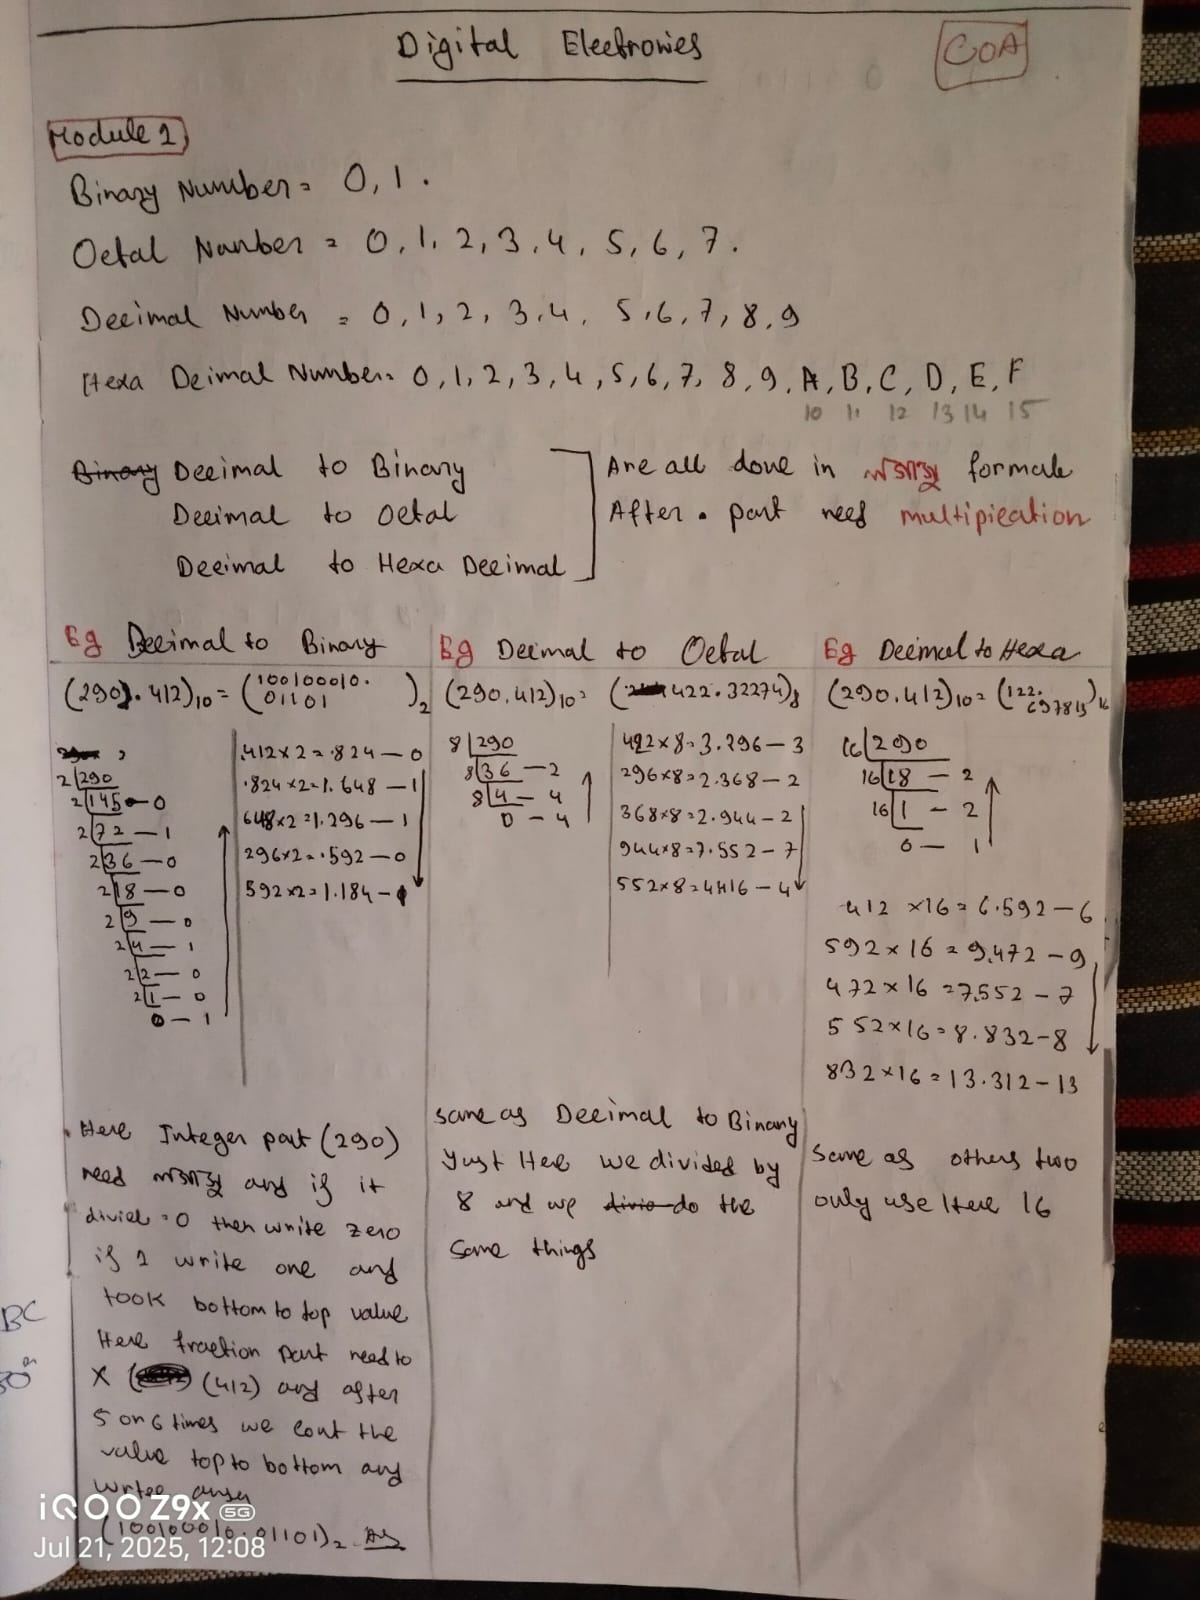 Digital Electronics
COA
Module 1
Binary Number = 0, 1.
Octal Number = 0, 1, 2, 3, 4, 5, 6, 7.
Decimal Number = 0, 1, 2, 3, 4, 5, 6, 7, 8, 9
Hexa Deimal Number = 0, 1, 2, 3, 4, 5, 6, 7, 8, 9, A, B, C, D, E, F
10 11 12 13 14 15
Binary Decimal to Binary
Decimal to Octal
Decimal to Hexa Decimal
Are all done in formate
After . part need multipication
Eg Decimal to Binary
(290). 412)10 = (100100010. 01101)2
2 | 290
2 | 145 - 0
2 | 72 - 1
2 | 36 - 0
2 | 18 - 0
2 | 9 - 0
2 | 4 - 1
2 | 2 - 0
2 | 1 - 0
0 - 1
.412 x 2 = .824 - 0
.824 x 2 = 1.648 - 1
648 x 2 = 1.296 - 1
296 x 2 = .592 - 0
592 x 2 = 1.184 - 1
. Here Integer part (290)
need and if it
divied = 0 then write zero
if 1 write one and
took bottom to top value
Here fraction part need to
x (412) and after
5 or 6 times we cout the
value top to bottom and
(100100010.01101)2 Ans
Eg Deimal to Octal
(290.412)10 = (422.32274)8
8 | 290
8 | 36 - 2
8 | 4 - 4
0 - 4
412 x 8 = 3.296 - 3
296 x 8 = 2.368 - 2
368 x 8 = 2.944 - 2
944 x 8 = 7.552 - 7
552 x 8 = 4.416 - 4
Same as Decimal to Binary
Just Here we divided by
8 and we divio do the
Same things
Eg Deimal to Hexa
(290.412)10 = (122. 697813)16
16 | 290
16 | 18 - 2
16 | 1 - 2
0 - 1
412 x 16 = 6.592 - 6
592 x 16 = 9.472 - 9
472 x 16 = 7.552 - 7
552 x 16 = 8.832 - 8
832 x 16 = 13.312 - 13
Same as others two
only use Here 16
BC
iQOO Z9x 5G
Jul 21, 2025, 12:08